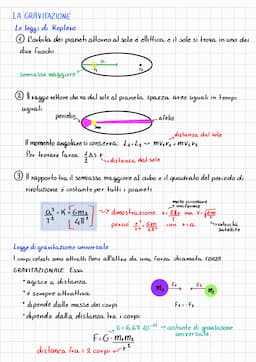 LA GRAVITAZIONE
Le leggi di Keplero
① L'orbita dei pianeti attorno al sole è ellittica e il sole si trova in uno dei
due fuochi.
semiasse maggiore
② Il raggio vettore che va dal sole al pianeta spazza aree uguali in tempi
uguali
perielio
afelio
distanza dal sole
Il momento angolare si conserva: L₁ = L₂ → m v₁ r₁ = m v₂ r₂
Per trovare l'area: 1/2 Δs r
distanza dal sole
③ Il rapporto tra il semiasse maggiore al cubo e il quadrato del periodo di
rivoluzione è costante per tutti i pianeti
moto circolare
uniforme
a³/T² = K [Gms/4π²] → dimostrazione v = 2πr/T ma v =
però
con r = a
velocità
satellite
Legge di gravitazione universale
I corpi celesti sono attratti l'uno all'altro da una forza chiamata FORZA
GRAVITAZIONALE. Essa:
• agisce a distanza
• è sempre attrattiva
• dipende dalle masse dei corpi
• dipende dalla distanza tra i corpi
m₁ F₁ F₂ m₂
F₁ = -F₂
G = 6,67 · 10⁻¹¹ → costante di gravitazione
universale
F = G · m₁m₂/r²
distanza fra i 2 corpi